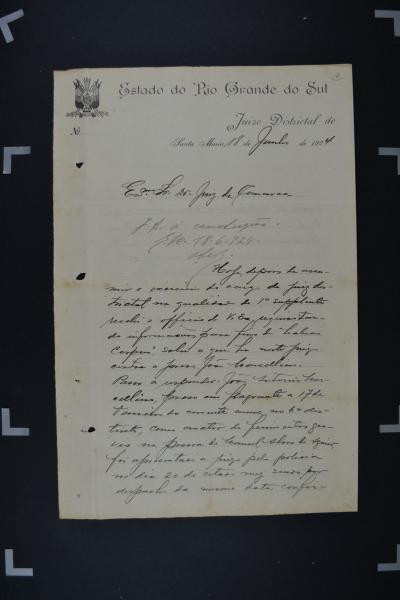 Estado do Rio Grande do Sul
Juizo Districtal de
Nº
Santa Maria, 18 de Junho de 1924
Exmo. Sr. Dr. Juiz de Comarca
J. A. á conclusão.
S. M. 18-6-924.
Hoje, depois de assu-
mir o exercicio do cargo de juiz dis-
trictal na qualidade de 1º supplente
recebi o officio de V. Exa. requisitan-
do informações para fins de "habeas
corpus" sobre o que ha neste juizo
contra o preso João Marcellino.
Passo a responder: João Antonio Mar-
cellino, preso em flagrante a 17 de
do corrente anno, no 6º dis-
tricto, como auctor de ferimentos gra-
ves na pessoa de Manoel Alves de
foi apresentado a juizo pela policia
no dia 20 do citado mez sendo por
despacho da mesma data confir-